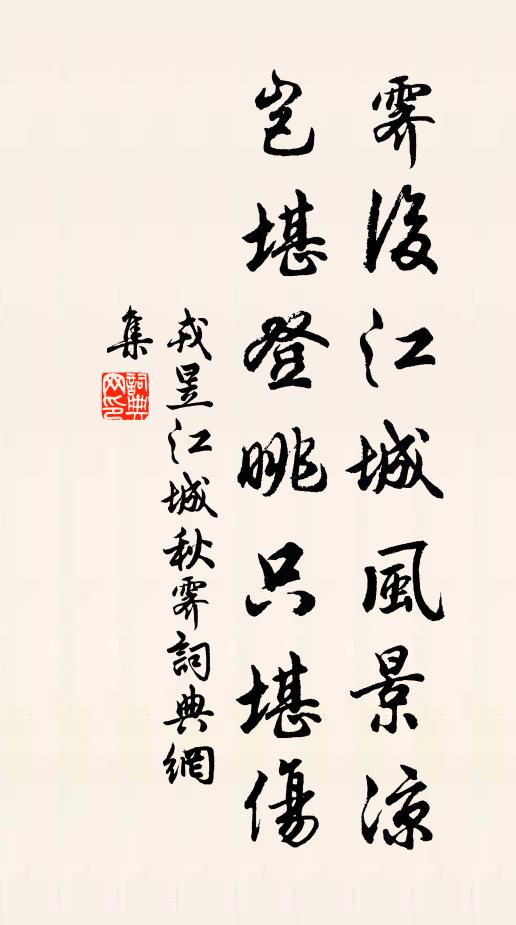 霽後江城風景涼
豈堪登眺只堪傷
戎昱江城秋霽詞典網
集
詞典
网印